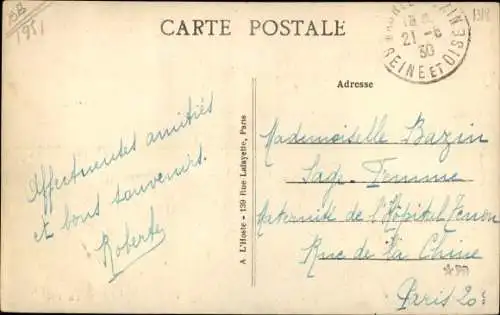 BB
1951
CARTE POSTALE
21-6
30
SEINE ET OISE
1318
Adresse
Affectueuses amitiés
et bons souvenirs.
Roberte
A L'Hoste - 139 Rue Lafayette, Paris
Mademoiselle Bazin
Sage-Femme
Maternité de l'Hôpital Tenon
Rue de la Chine
Paris 20e